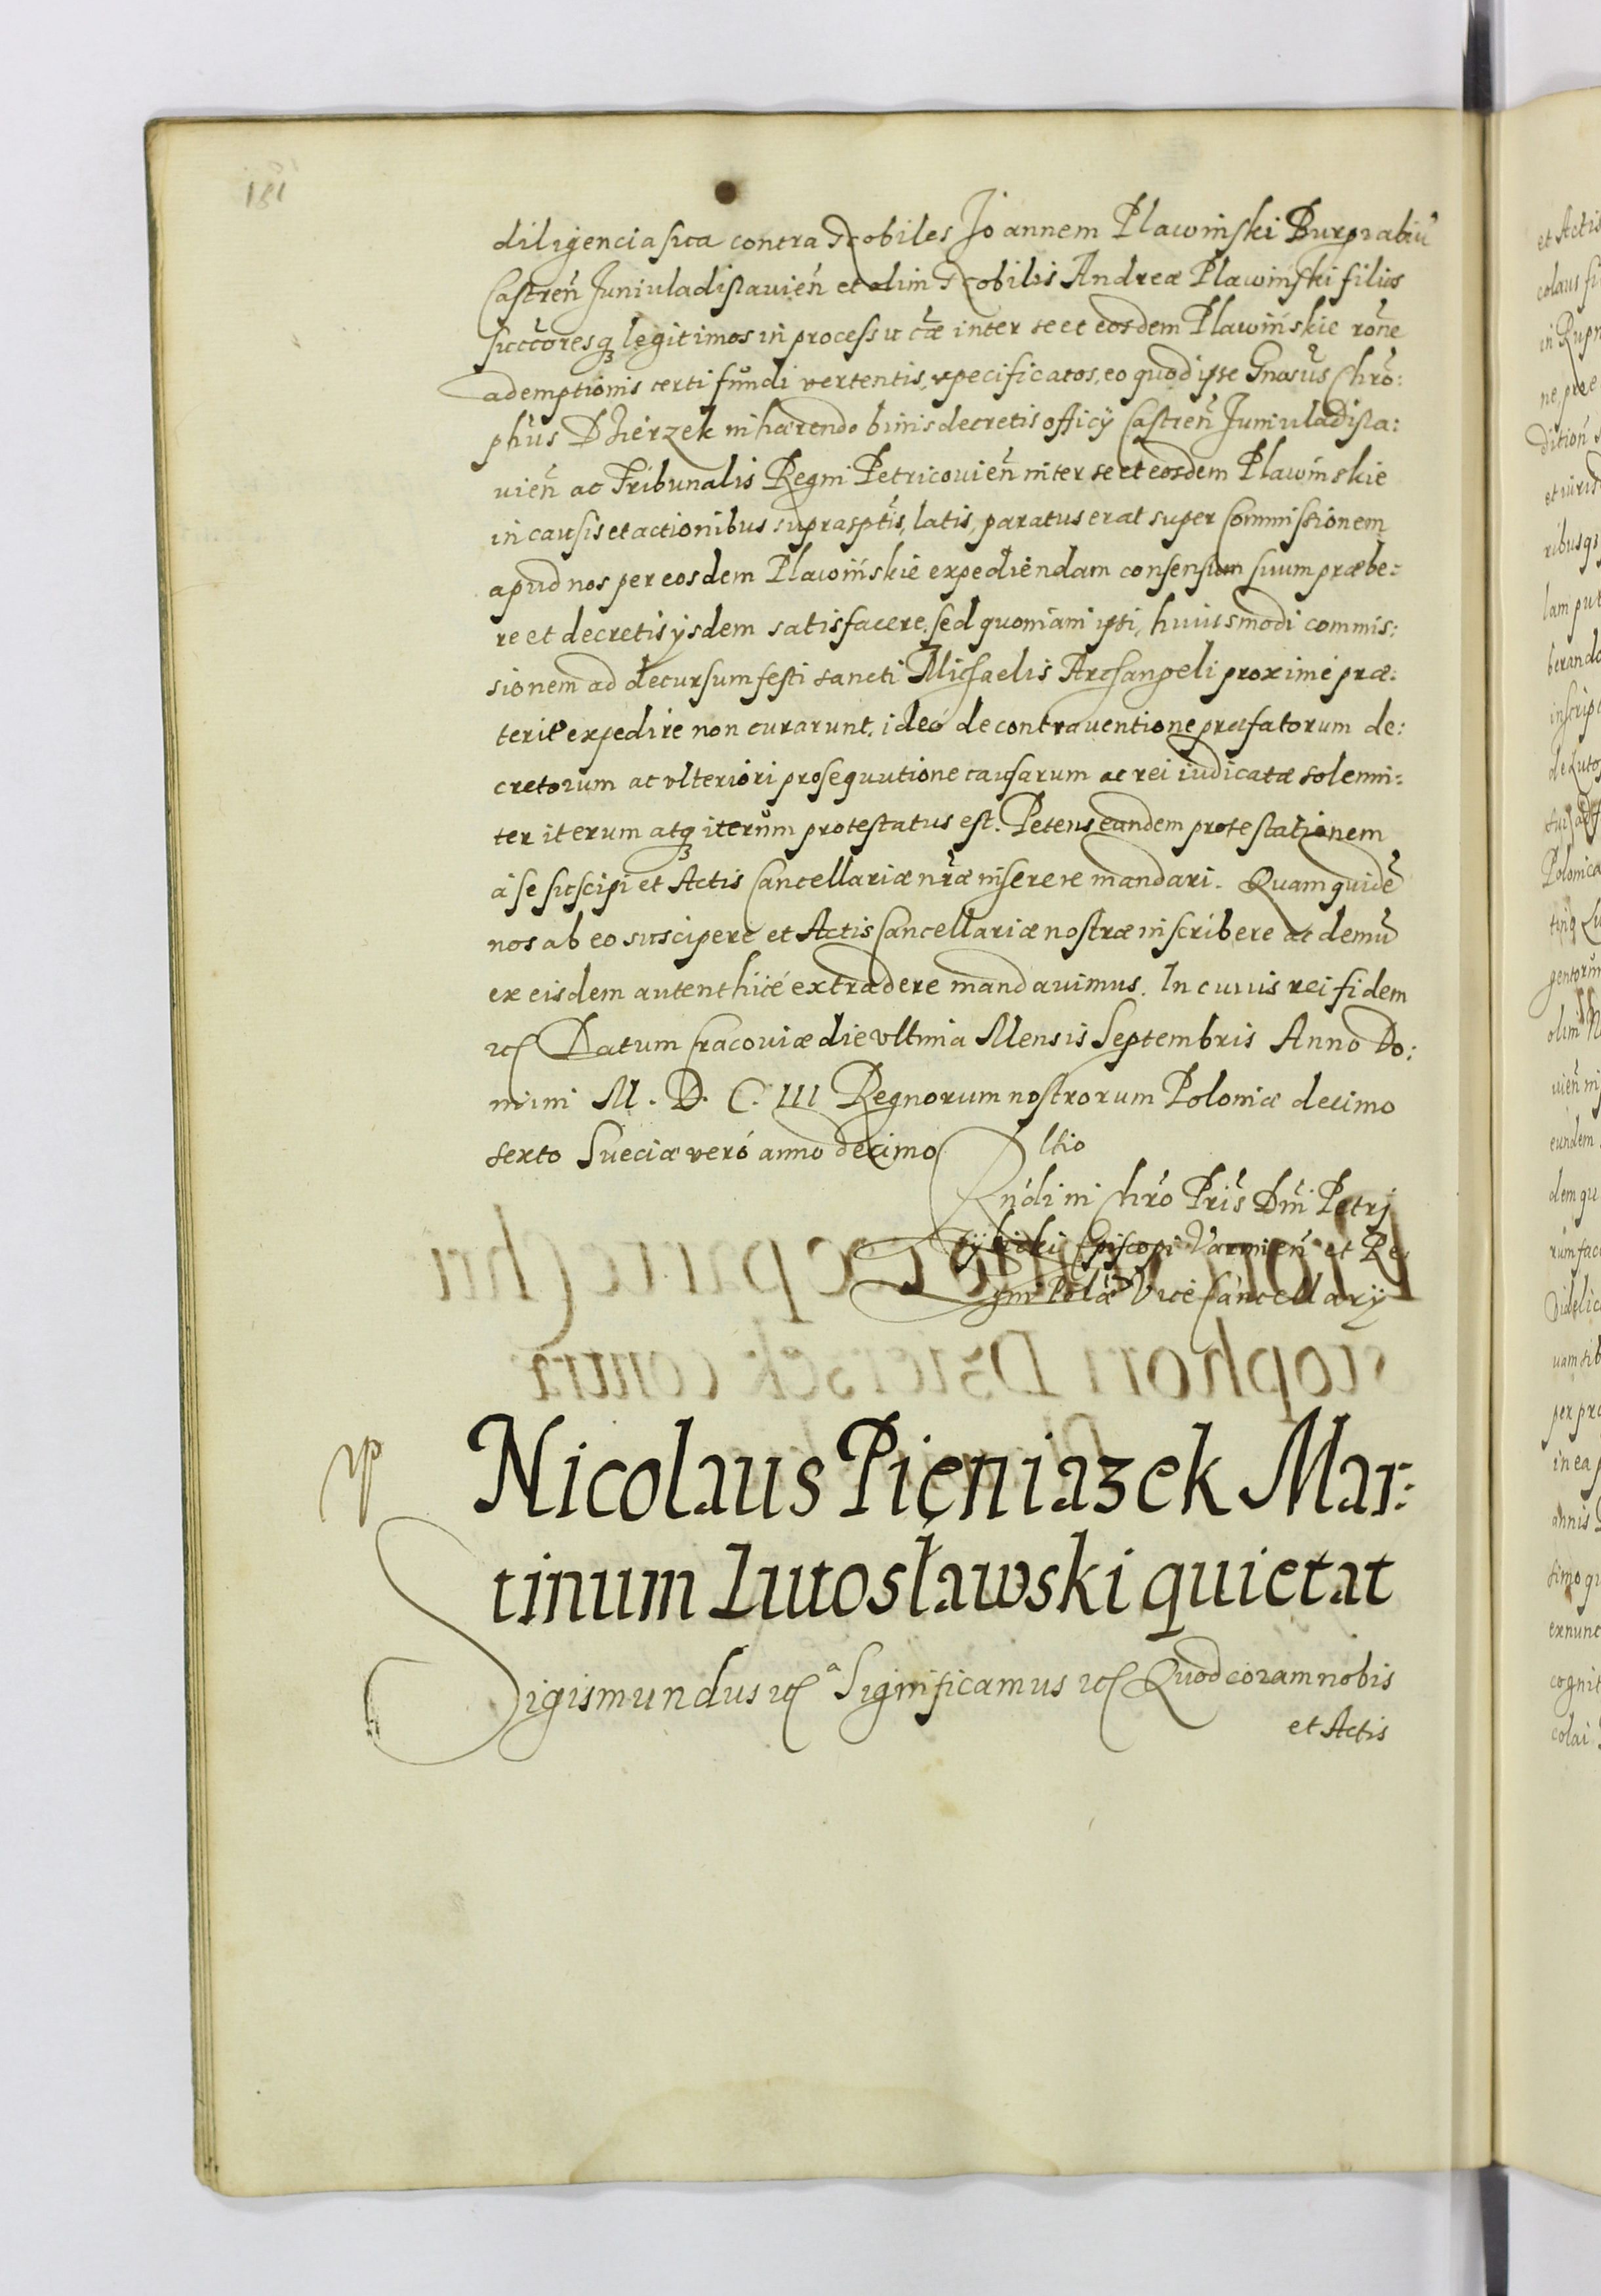 181
diligencia sua contra Nobiles Joannem Plawinski Burgrabiũ
Castreñ Juniuladislauieñ et olim Nobilis Andreæ Plawinski filios
succc̃oresq legitimos in processu cãe inter se et eosdem Plawińskie rõne
ademptionis certi fundi vertentis, specificatos, eo quod ipse Gnosus Chro:
phus Dzierzek inhærendo binis decretis officÿ Castreñ Juniuladisla:
uieñ ac Tribunalis Regni Petricouieñ inter se et eosdem Plawinskie
in causis et actionibus suprasptis, latis, paratus erat super Commissionem
apud nos per eosdem Plawińskie expediendam consensum suum præbe:
re et decretis ÿsdem satisfacere, sed quoniam ipsi, huiusmodi commis:
sionem ad decursum festi sancti Michaelis Archangeli proximé præ:
terit expedire non curarunt, ideó de contrauentione præfatorum de:
cretorum ac vlteriori prosequutione causarum ac rei iudicatæ solenni:
ter iterum atq iterum protestatus est. Petens eandem protestationem
à se suscipi et Actis Cancellariæ nr̃æ inserere mandari. Quam quidẽ
nos ab eo suscipere et Actis Cancellariæ nostræ inscribere ac demũ
ex eisdem autenthicé extradere mandauimus. In cuius rei fidem
etc Datum Cracouiæ die vltima Mensis Septembris Anno Do:
mini M. D. C. III Regnorum nostrorum Poloniæ decimo
sexto Sueciæ veró anno decimo
Rltio
Rndi in Chro Pris Dni Petri
Tÿlicki Episcopi Varmieñ et Re
gni Polæ Vice Cancellarÿ
Nicolaus Pieniazek Mar:
tinum Lutosławski quietat
Sigismundus etc Significamus etc Quod coram nobis
et Actis